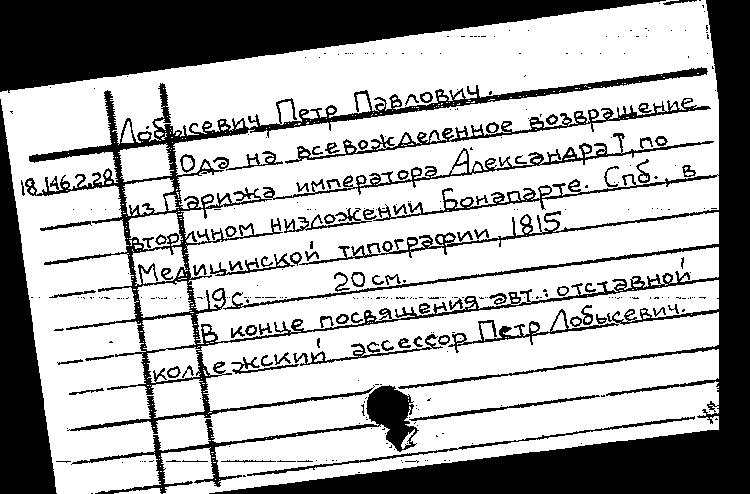 Лобысевич, Петр Павлович.
18.146.2.28
Ода на всевожделенное возвращение
из Парижа императора Александра I, по
вторичном низложении Бонапарте. Спб., в
Медицинской типографии, 1815.
19 с. 20 см.
В конце посвящения авт.: отставной
коллежский ассессор Петр Лобысевич.